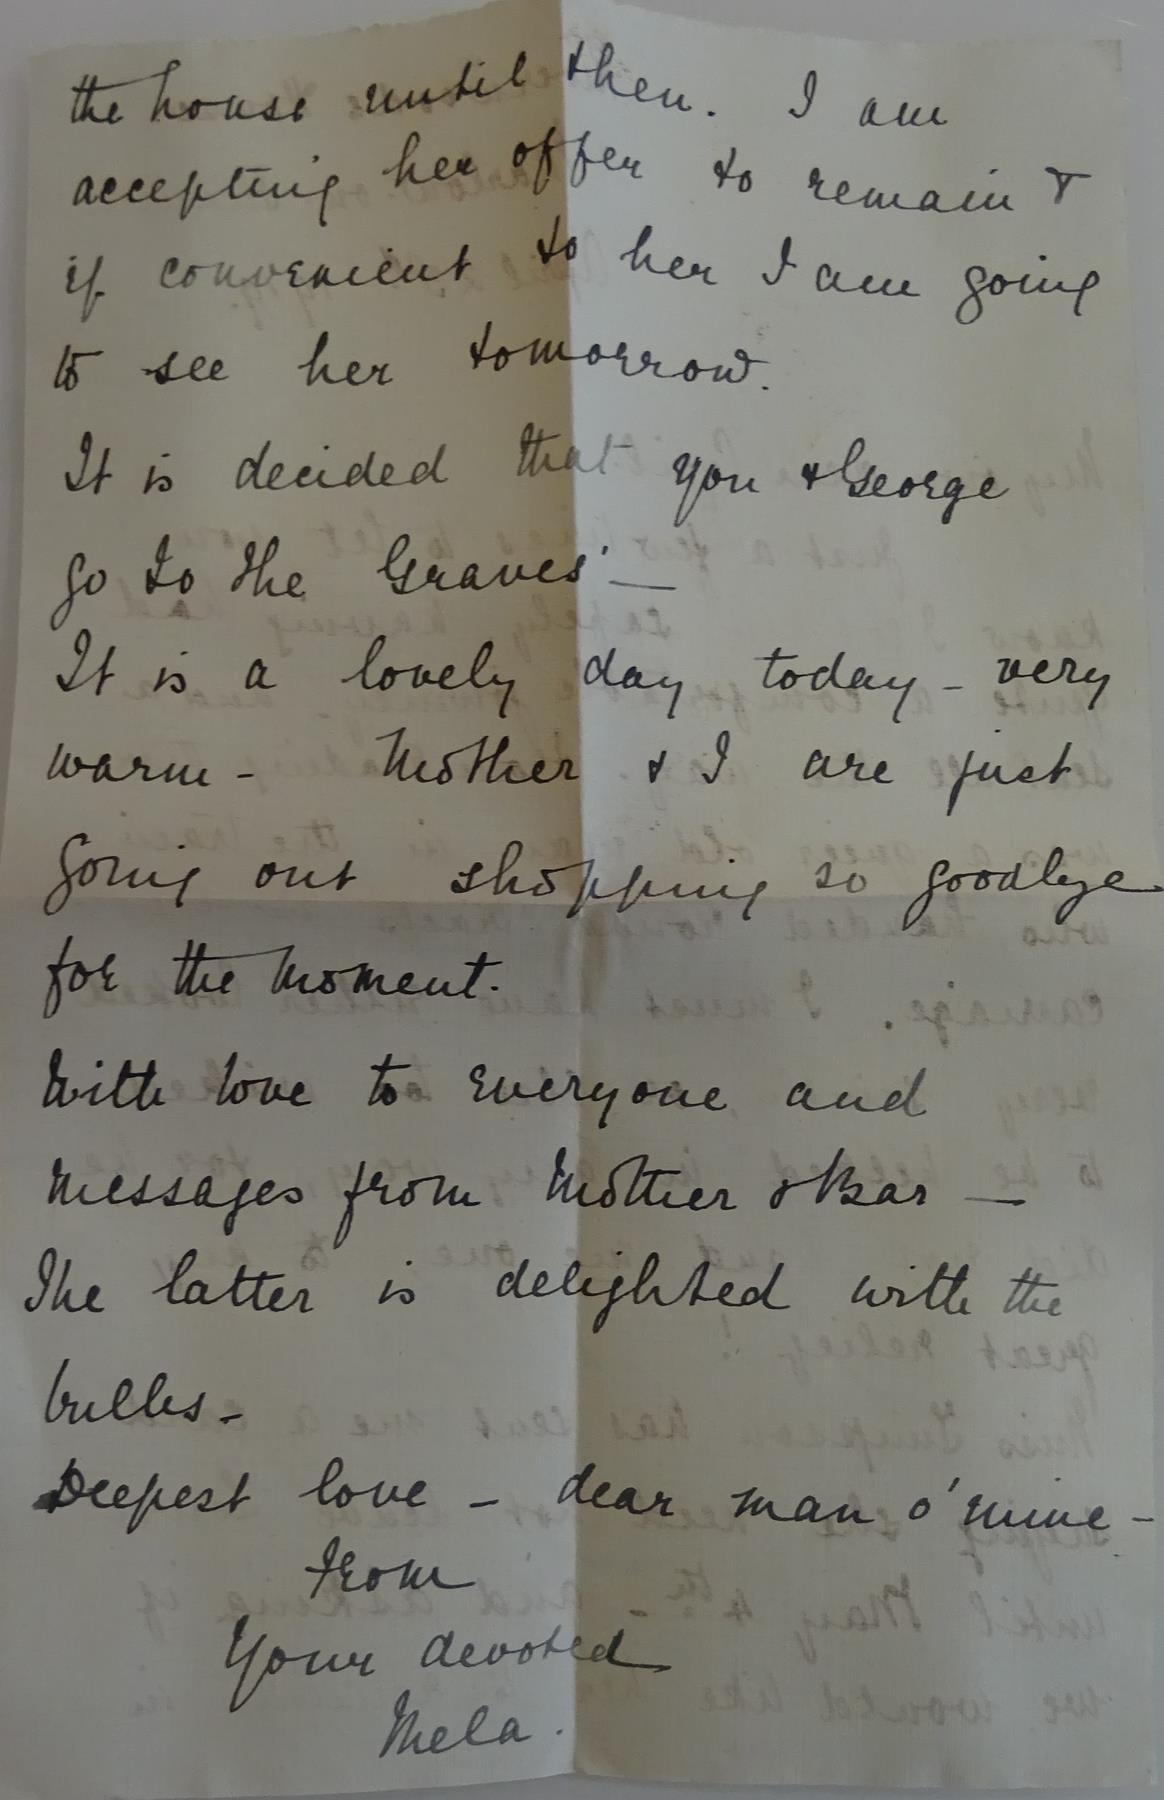 the house until then. I am
accepting her offer to remain &
if convenient to her I am going
to see her tomorrow.
It is decided that you & George
go to the Graves' —
It is a lovely day today - very
warm - Mother & I are just
going out shopping so goodbye
for the moment.
With love to everyone and
messages from Mother & Bar —
The latter is delighted with the
bulbs -
Deepest love - dear man o' mine -
From
Your devoted
Mela.